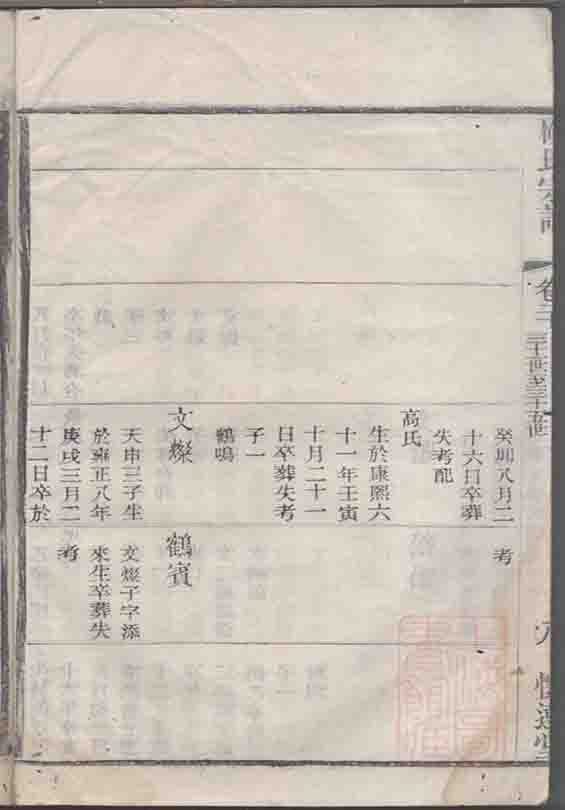 氏宗譜
癸卯八月二
十六日卒葬
失考配
高氏
生於康熙六
十一年壬寅
十月二十一
日卒葬失考
子一
鶴鳴
文燦
天申三子生
於雍正八年
庚戌三月二
十二日卒於
考
鶴賓
文燦子字添
來生卒葬失
考